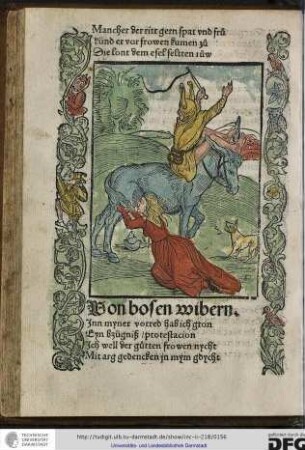 Mancher der ritt gern spat vnd frů
Künd er vor frowen kumen zů
Die lont dem esel seltten růw
Von bosen wibern.
Inn myner vorred hab ich gton
Eyn bzügniß / protestacion
Ich well der gůtten frowen nycht
Mit arg gedencken jn mym gdycht
TECHNISCHE
UNIVERSITÄT
DARMSTADT
http://tudigit.ulb.tu-darmstadt.de/show/inc-ii-218/0156
Universitäts- und Landesbibliothek Darmstadt
gefördert durch die
DFG